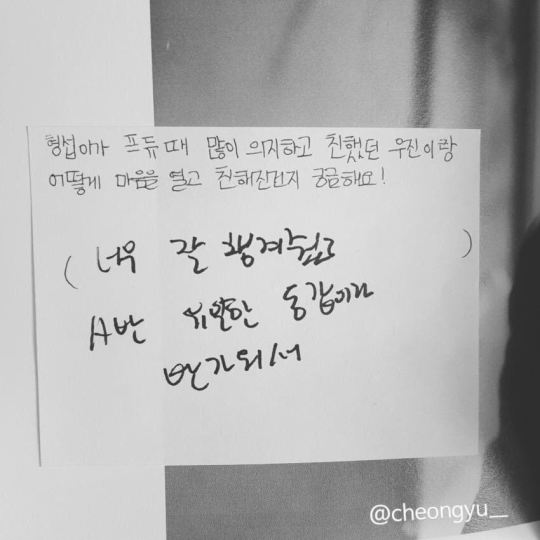 형섭아가 프듀때 많이 의지하고 친했던 우진이랑
어떻게 마음을 열고 친해진건지 궁금해요!
( 너무 잘 챙겨줬고 )
A반 유일한 동갑이라
반가워서
@cheongyu__